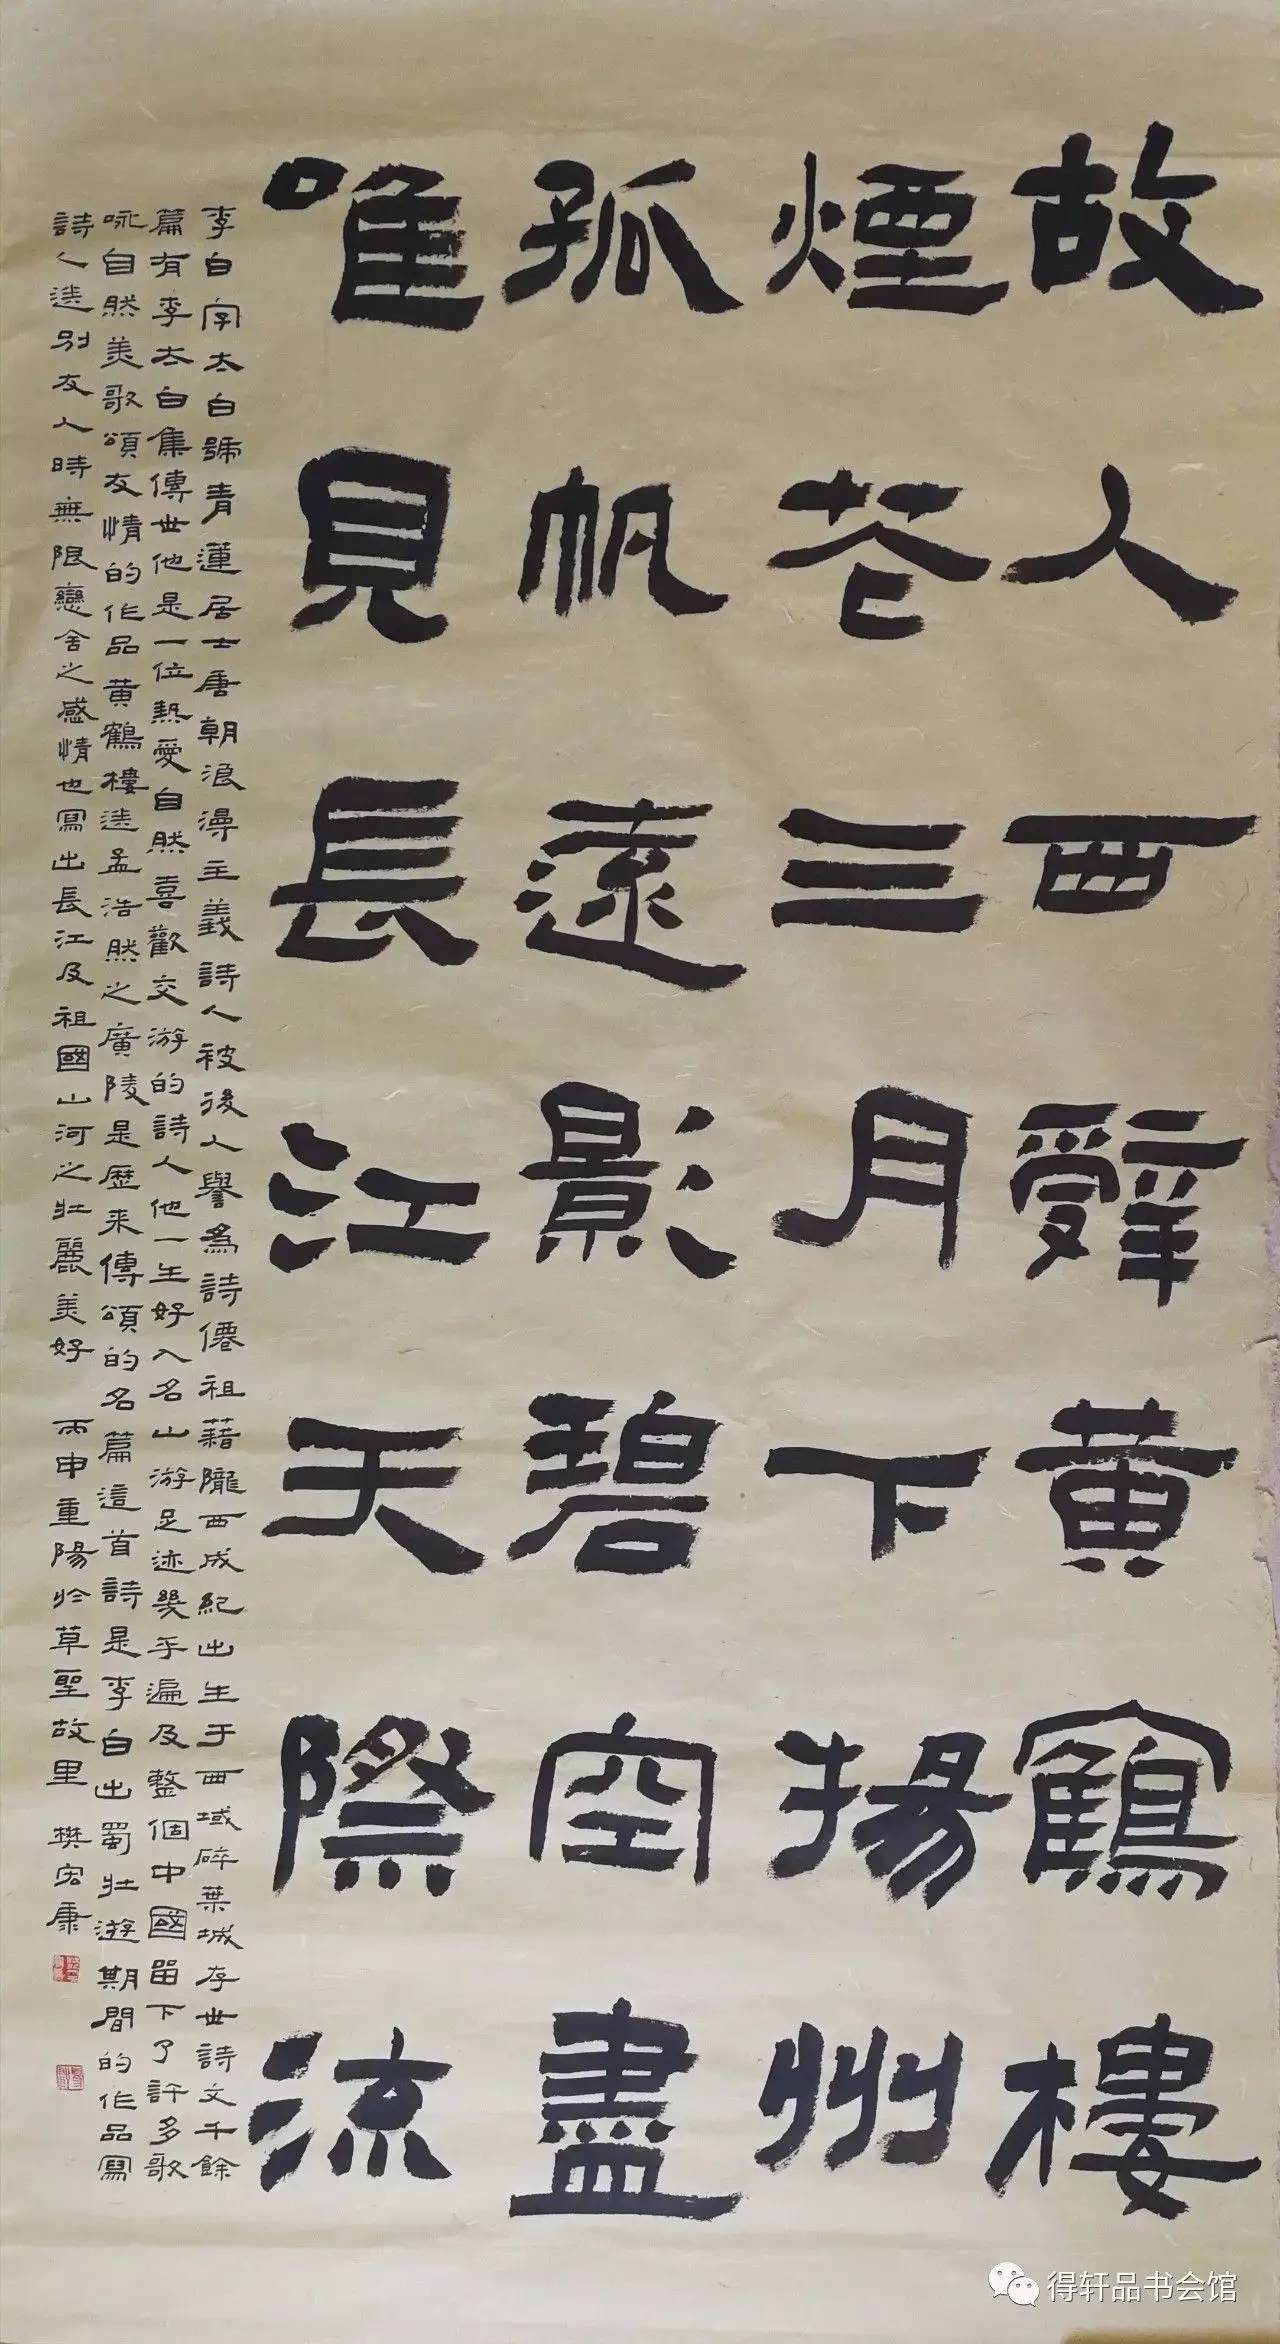 故人西辭黄鶴樓
煙花三月下揚州
孤帆遠影碧空盡
唯見長江天際流
李白字太白號青蓮居士唐朝浪漫主義詩人被後人譽為詩僊祖藉隴西成紀出生于西域碎葉城存世詩文千餘
篇有李太白集傳世他是一位熱愛自然喜歡交游的詩人他一生好入名山游足迹幾乎遍及整個中國留下了許多歌
咏自然美歌頌友情的作品黄鶴樓送孟浩然之廣陵是歷来傳頌的名篇這首詩是李白出蜀壯遊期間的作品寫
詩人送別友人時無限戀舍之感情也寫出長江及祖國山河之壯麗美好 丙申重陽於草聖故里 樊宏康
得轩品书会馆